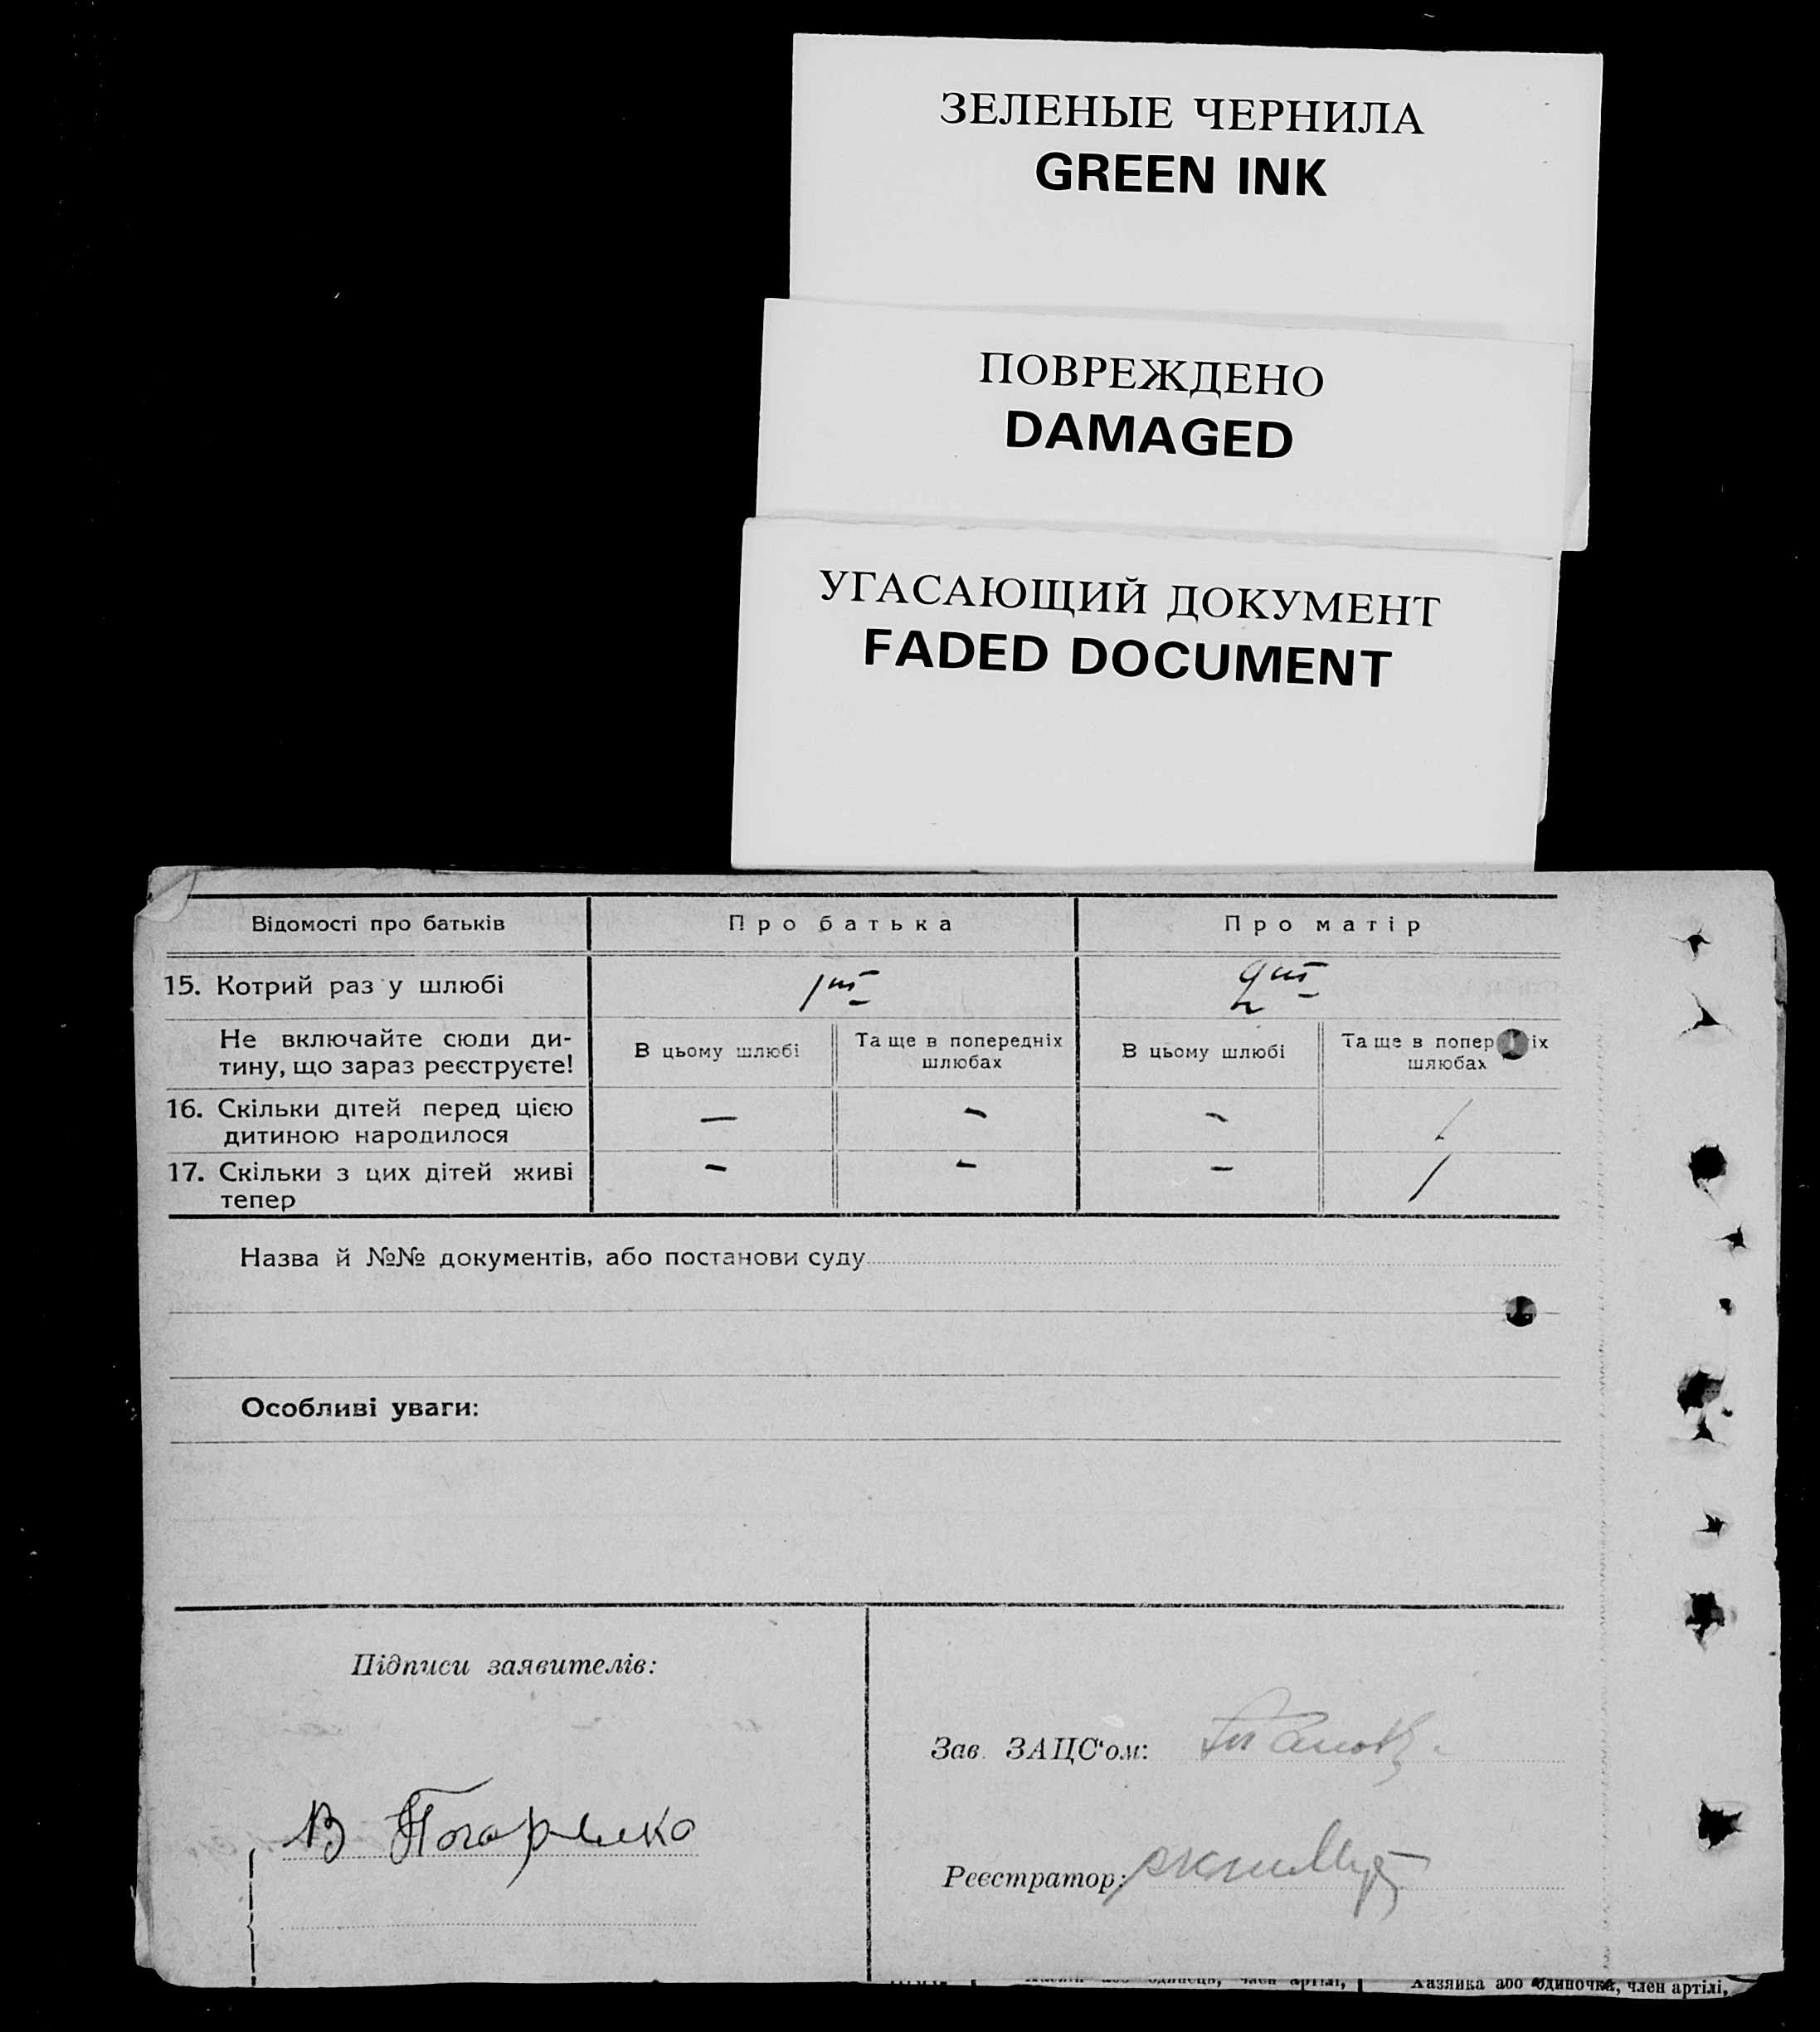 ЗЕЛЕНЫЕ ЧЕРНИЛА
GREEN INK
ПОВРЕЖДЕНО
DAMAGED
УГАСАЮЩИЙ ДОКУМЕНТ
FADED DOCUMENT
Відомості про батьків Про батька Про матір
15. Котрий раз у шлюбі
Не включайте сюди ди-
тину, що зараз реєструєте!
В цьому шлюбі
Та ще в попередніх
шлюбах
В цьому шлюбі
Та ще в попер іх
шлюбах
16. Скільки дітей перед цією
дитиною народилося
— - - /
17. Скільки з цих дітей живі
тепер
- - - /
Назва й №№ документів, або постанови суду
Особливі уваги:
Підписи заявителів:
В
Зав. ЗАЦС'ом:
Реєстратор:
одинець, член артілі,
Хазяйка або одиночка, член артілі,